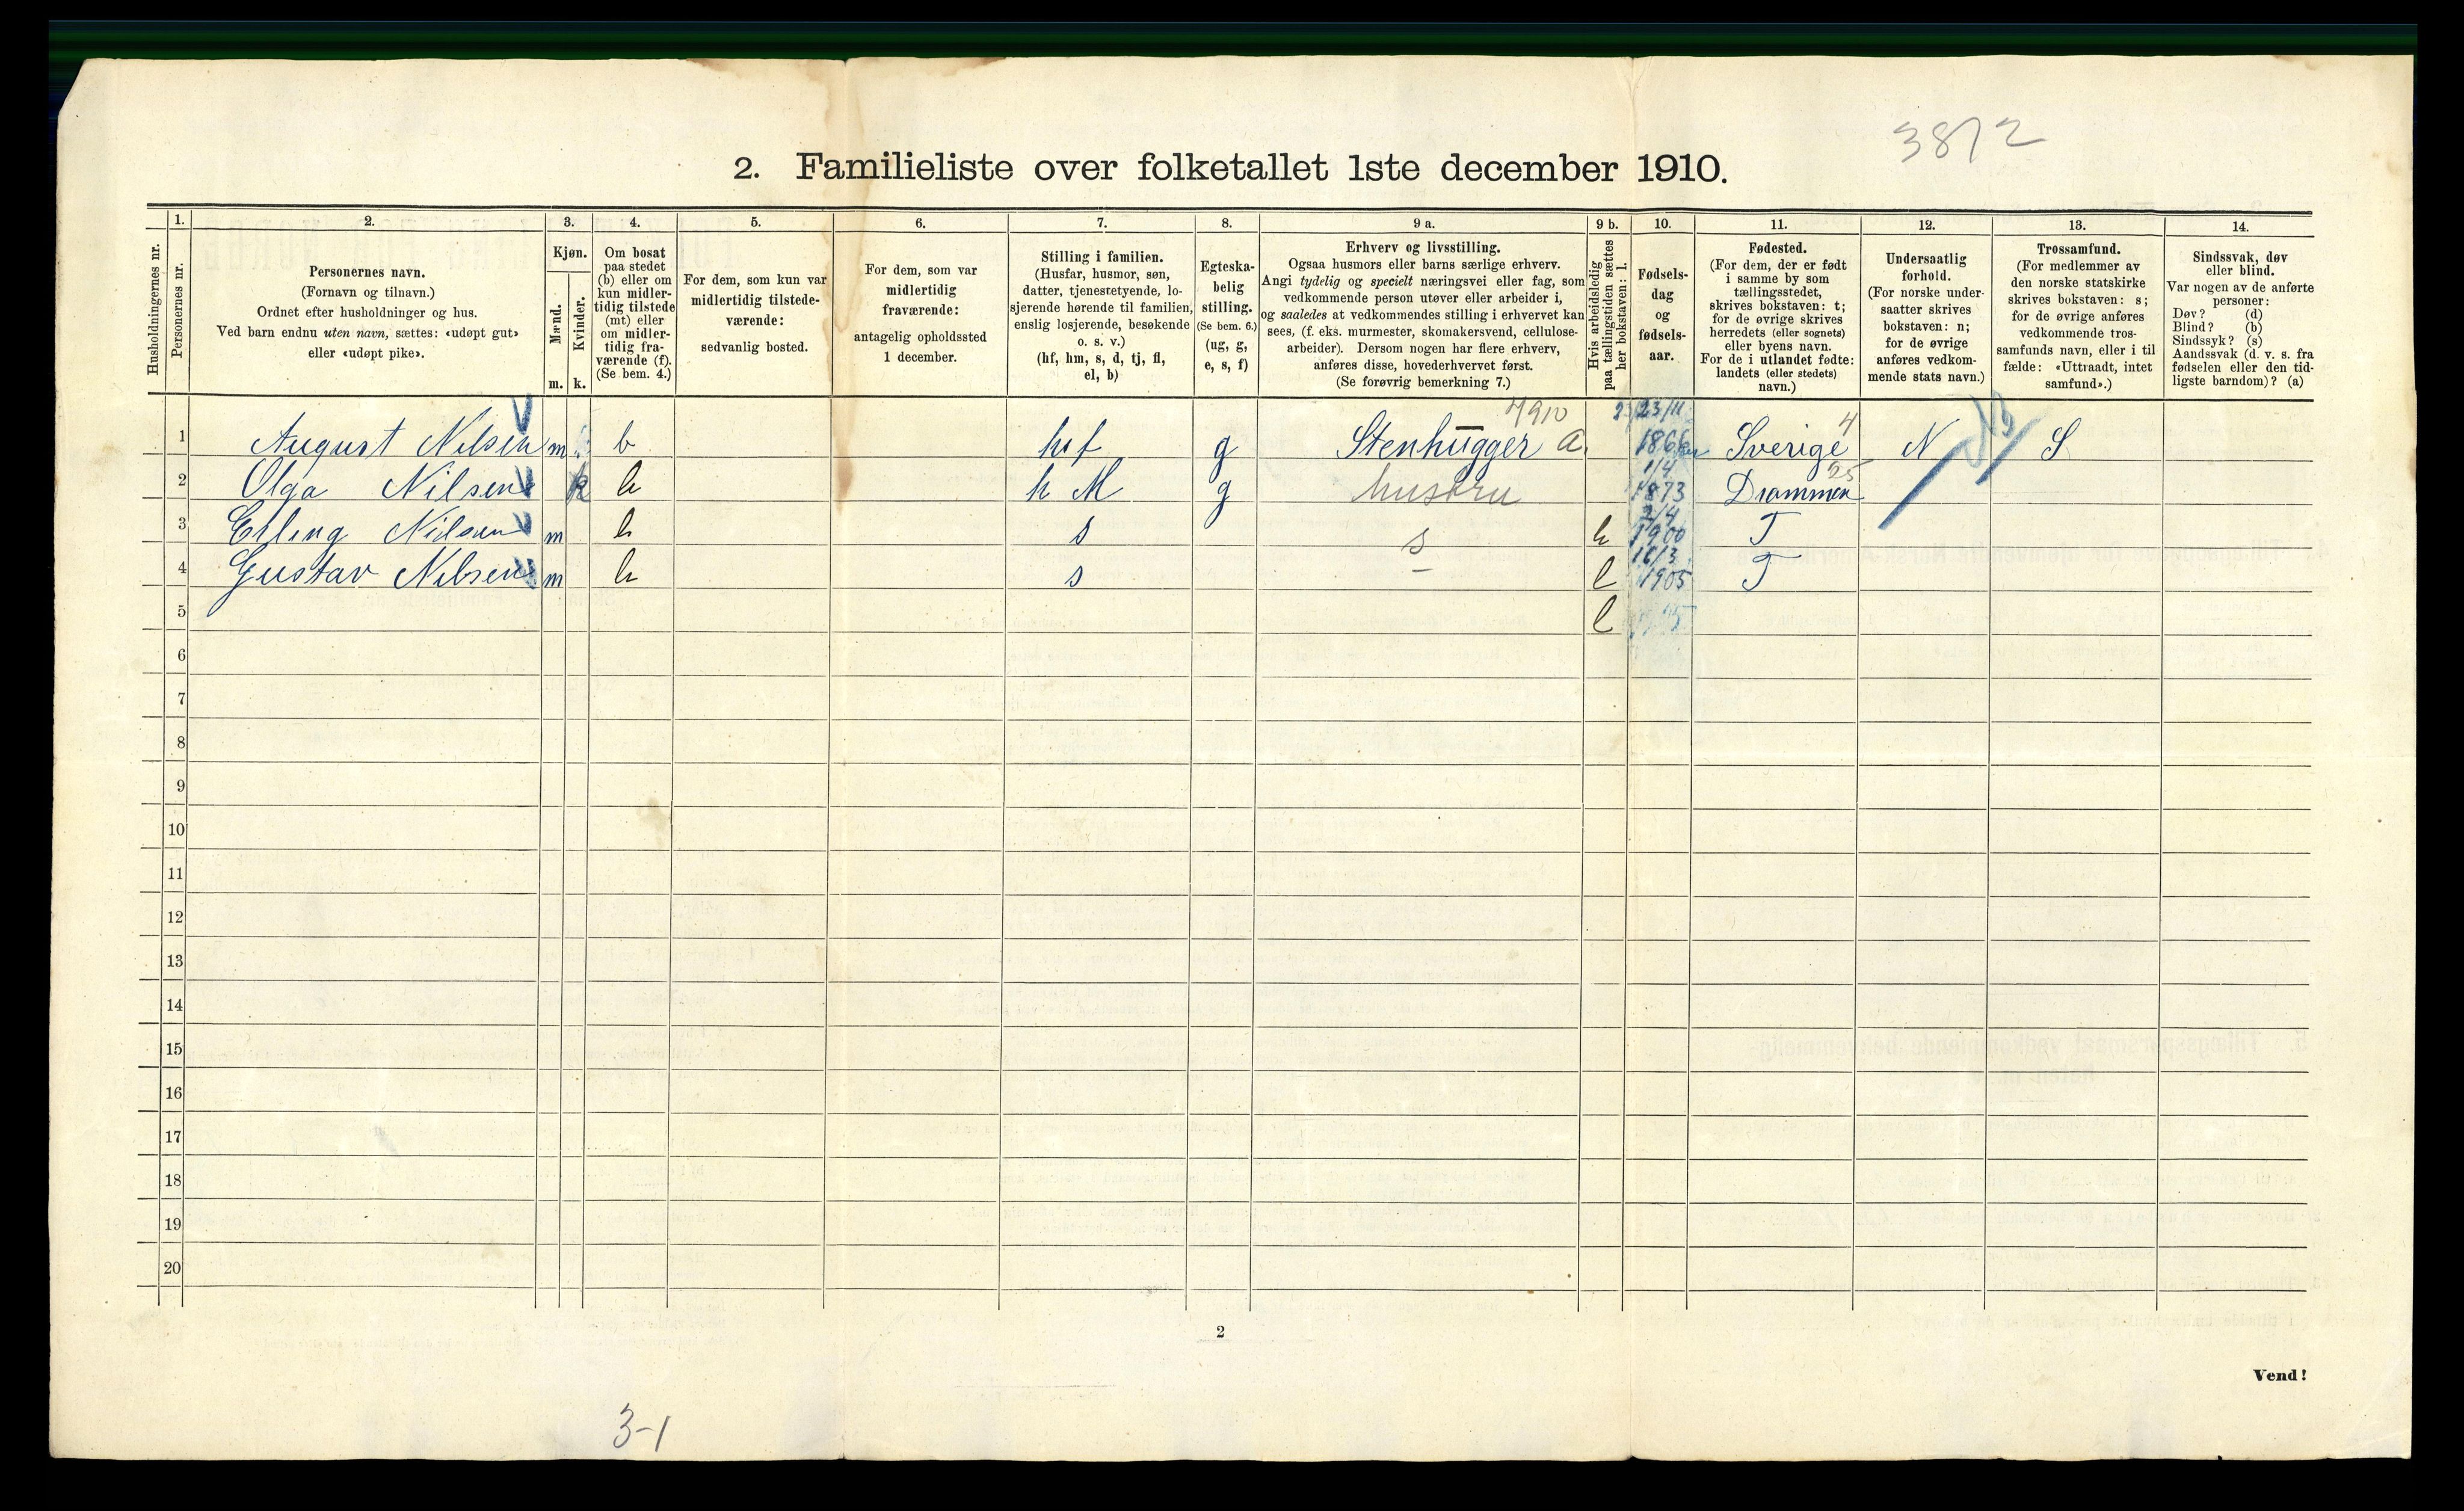 3872
2. Familieliste over folketallet 1ste december 1910.
1. 2. 3. 4. 5. 6. 7. 8. 9 a. 9 b. 10. 11. 12. 13. 14.
Husholdningernes nr.
Personernes nr.
Personernes navn.
(Fornavn og tilnavn.)
Ordnet efter husholdninger og hus.
Ved barn endnu uten navn, sættes: «udøpt gut»
eller «udøpt pike».
Kjøn.
Mænd.
Kvinder.
m. k.
Om bosat
paa stedet
(b) eller om
kun midler-
tidig tilstede
(mt) eller
om midler-
tidig fra-
værende (f).
(Se bem. 4.)
For dem, som kun var
midlertidig tilstede-
værende:
sedvanlig bosted.
For dem, som var
midlertidig
fraværende:
antagelig opholdssted
1 december.
Stilling i familien.
(Husfar, husmor, søn,
datter, tjenesretyende, lo-
sjerende hørende til familien,
enslig losjerende, besøkende
o. s. v.)
(hf, hm, s, d, tj, fl,
el, b)
Egteska-
belig
stilling.
(Se bem. 6.)
(ug, g,
e, s, f)
Erhverv og livsstilling.
Ogsaa husmors eller barns særlige erhverv.
Angi tydelig og specielt næringsvei eller fag, som
vedkommende person utøver eller arbeider i,
og saaledes at vedkommendes stilling i erhvervet kan
sees, (f. eks. murmester, skomakersvend, cellulose-
arbeider). Dersom nogen har flere erhverv,
anføres disse, hovederhvervet først.
(Se forøvrig bemerkning 7.)
Hvis arbeidsledig
paa tællingstiden sættes
her bokstaven: l.
Fødsels-
dag
og
fødsels-
aar.
Fødested.
(For dem, der er født
i samme by som
tællingsstedet,
skrives bokstaven: t;
for de øvrige skrives
herredets (eller sognets)
eller byens navn.
For de i utlandet fødte:
landets (eller stedets)
navn.)
Undersaatlig
forhold.
(For norske under-
saatter skrives
bokstaven: n;
for de øvrige
anføres vedkom-
mende stats navn.)
Trossamfund.
(For medlemmer av
den norske statskirke
skrives bokstaven: s;
for de øvrige anføres
vedkommende tros-
samfunds navn, eller i til
fælde: «Uttraadt, intet
samfund».)
Sindssvak, døv
eller blind.
Var nogen av de anførte
personer:
Døv? (d)
Blind? (b)
Sindssyk? (s)
Aandssvak (d. v. s. fra
fødselen eller den tid-
ligste barndom)? (a)
4910 23/11 4
1 August Nilsen m b hf g Stenhugger a. 1866 Sverige N S
1/4 25
2 Olga Nilsen k b h M g hustru 1873 Drammen
2/4
3 Erling Nilsen m b s s 1900 T
16/3
4 Gustav Nilsen m b s – l 1905 T
5 l
6
7
8
9
10
11
12
13
14
15
16
17
18
19
20
2
Vend!
3-1